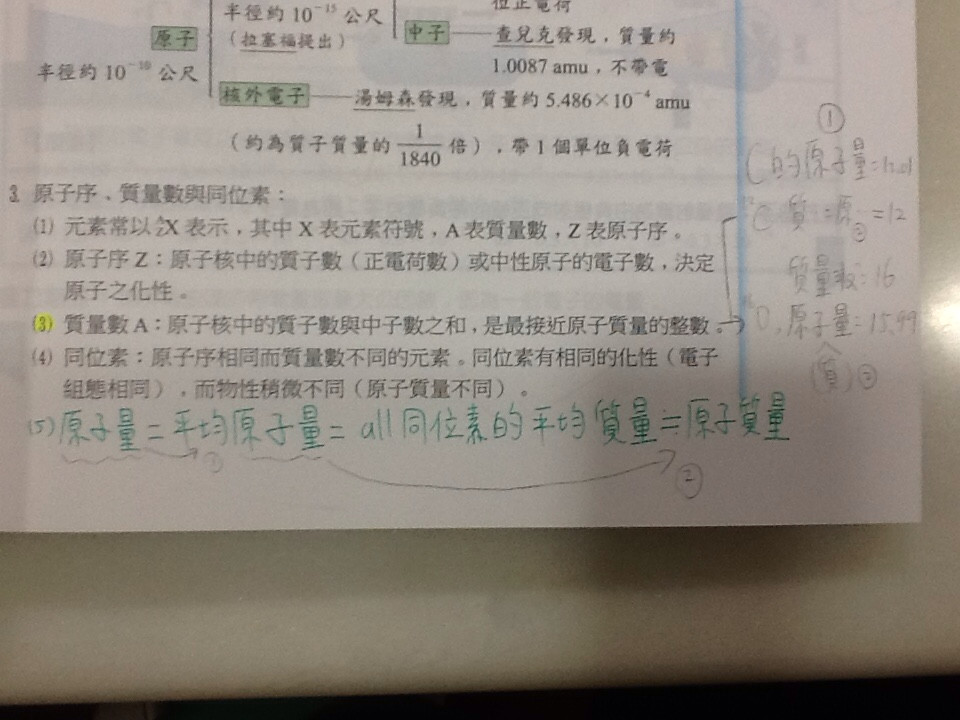 半徑約 10⁻¹⁵ 公尺
位正電荷
原子
（拉塞福提出）
中子
查兌克發現，質量約
半徑約 10⁻¹⁰ 公尺
1.0087 amu，不帶電
核外電子
湯姆森發現，質量約 5.486×10⁻⁴ amu
（約為質子質量的 1/1840 倍），帶 1 個單位負電荷
3. 原子序、質量數與同位素：
(1) 元素常以 X 表示，其中 X 表元素符號，A 表質量數，Z 表原子序。
(2) 原子序 Z：原子核中的質子數（正電荷數）或中性原子的電子數，決定
原子之化性。
(3) 質量數 A：原子核中的質子數與中子數之和，是最接近原子質量的整數。
(4) 同位素：原子序相同而質量數不同的元素。同位素有相同的化性（電子
組態相同），而物性稍微不同（原子質量不同）。
(5) 原子量=平均原子量= all同位素的平均質量≒原子質量
①
②
①
C的原子量=12.01
C 質 原 =12
②
質量數=16
O, 原子量=15.99
(質) ③